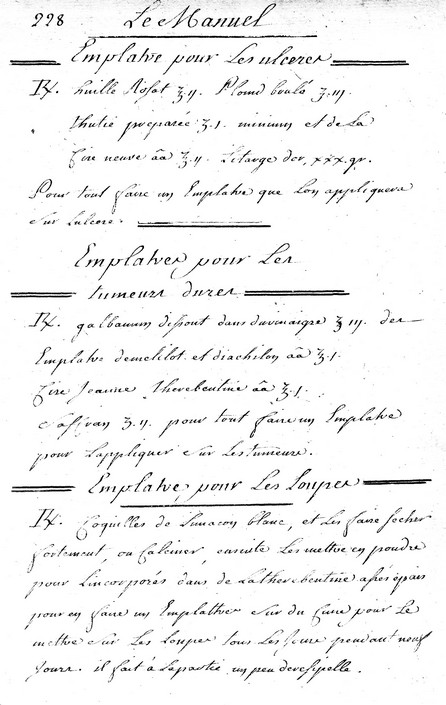 228 Le Manuel
Emplatre pour Les ulceres
℞. huille Rosat ℥.ij. Plomd brulé ℥.iij.
thutié preparée ℥.j. minium et de La
Cire neuve āā ℥.ij. Litarge dor, xxx.gr.
Pour tout faire un Emplatre que Lon appliquera
Sur Lulcere.
Emplatres pour Les
tumeurs dures
℞. galbanum dissout dans duvinaigre ℥ iij. des
Emplatre demelilot et diachilon āā ℥.j.
Cire Jeaune therebentine āā ℥.j.
Saffran ℥.ij. pour tout faire un Emplatre
pour Lappliquer sur Lestumeurs.
Emplatre, pour Les Loupes
℞. Coquilles de Limacon blanc, et Les faire secher
fortement, ou Calciner, ensuite Les mettre en poudre
pour Lincorporés dans de Latherebentine assés épais
pour en faire un Emplattre sur du Cuire pour Le
mettre sur Les Loupes tous Les Jours pendant neuf
Jours. il fait à Lapartie un peu deresipelle.